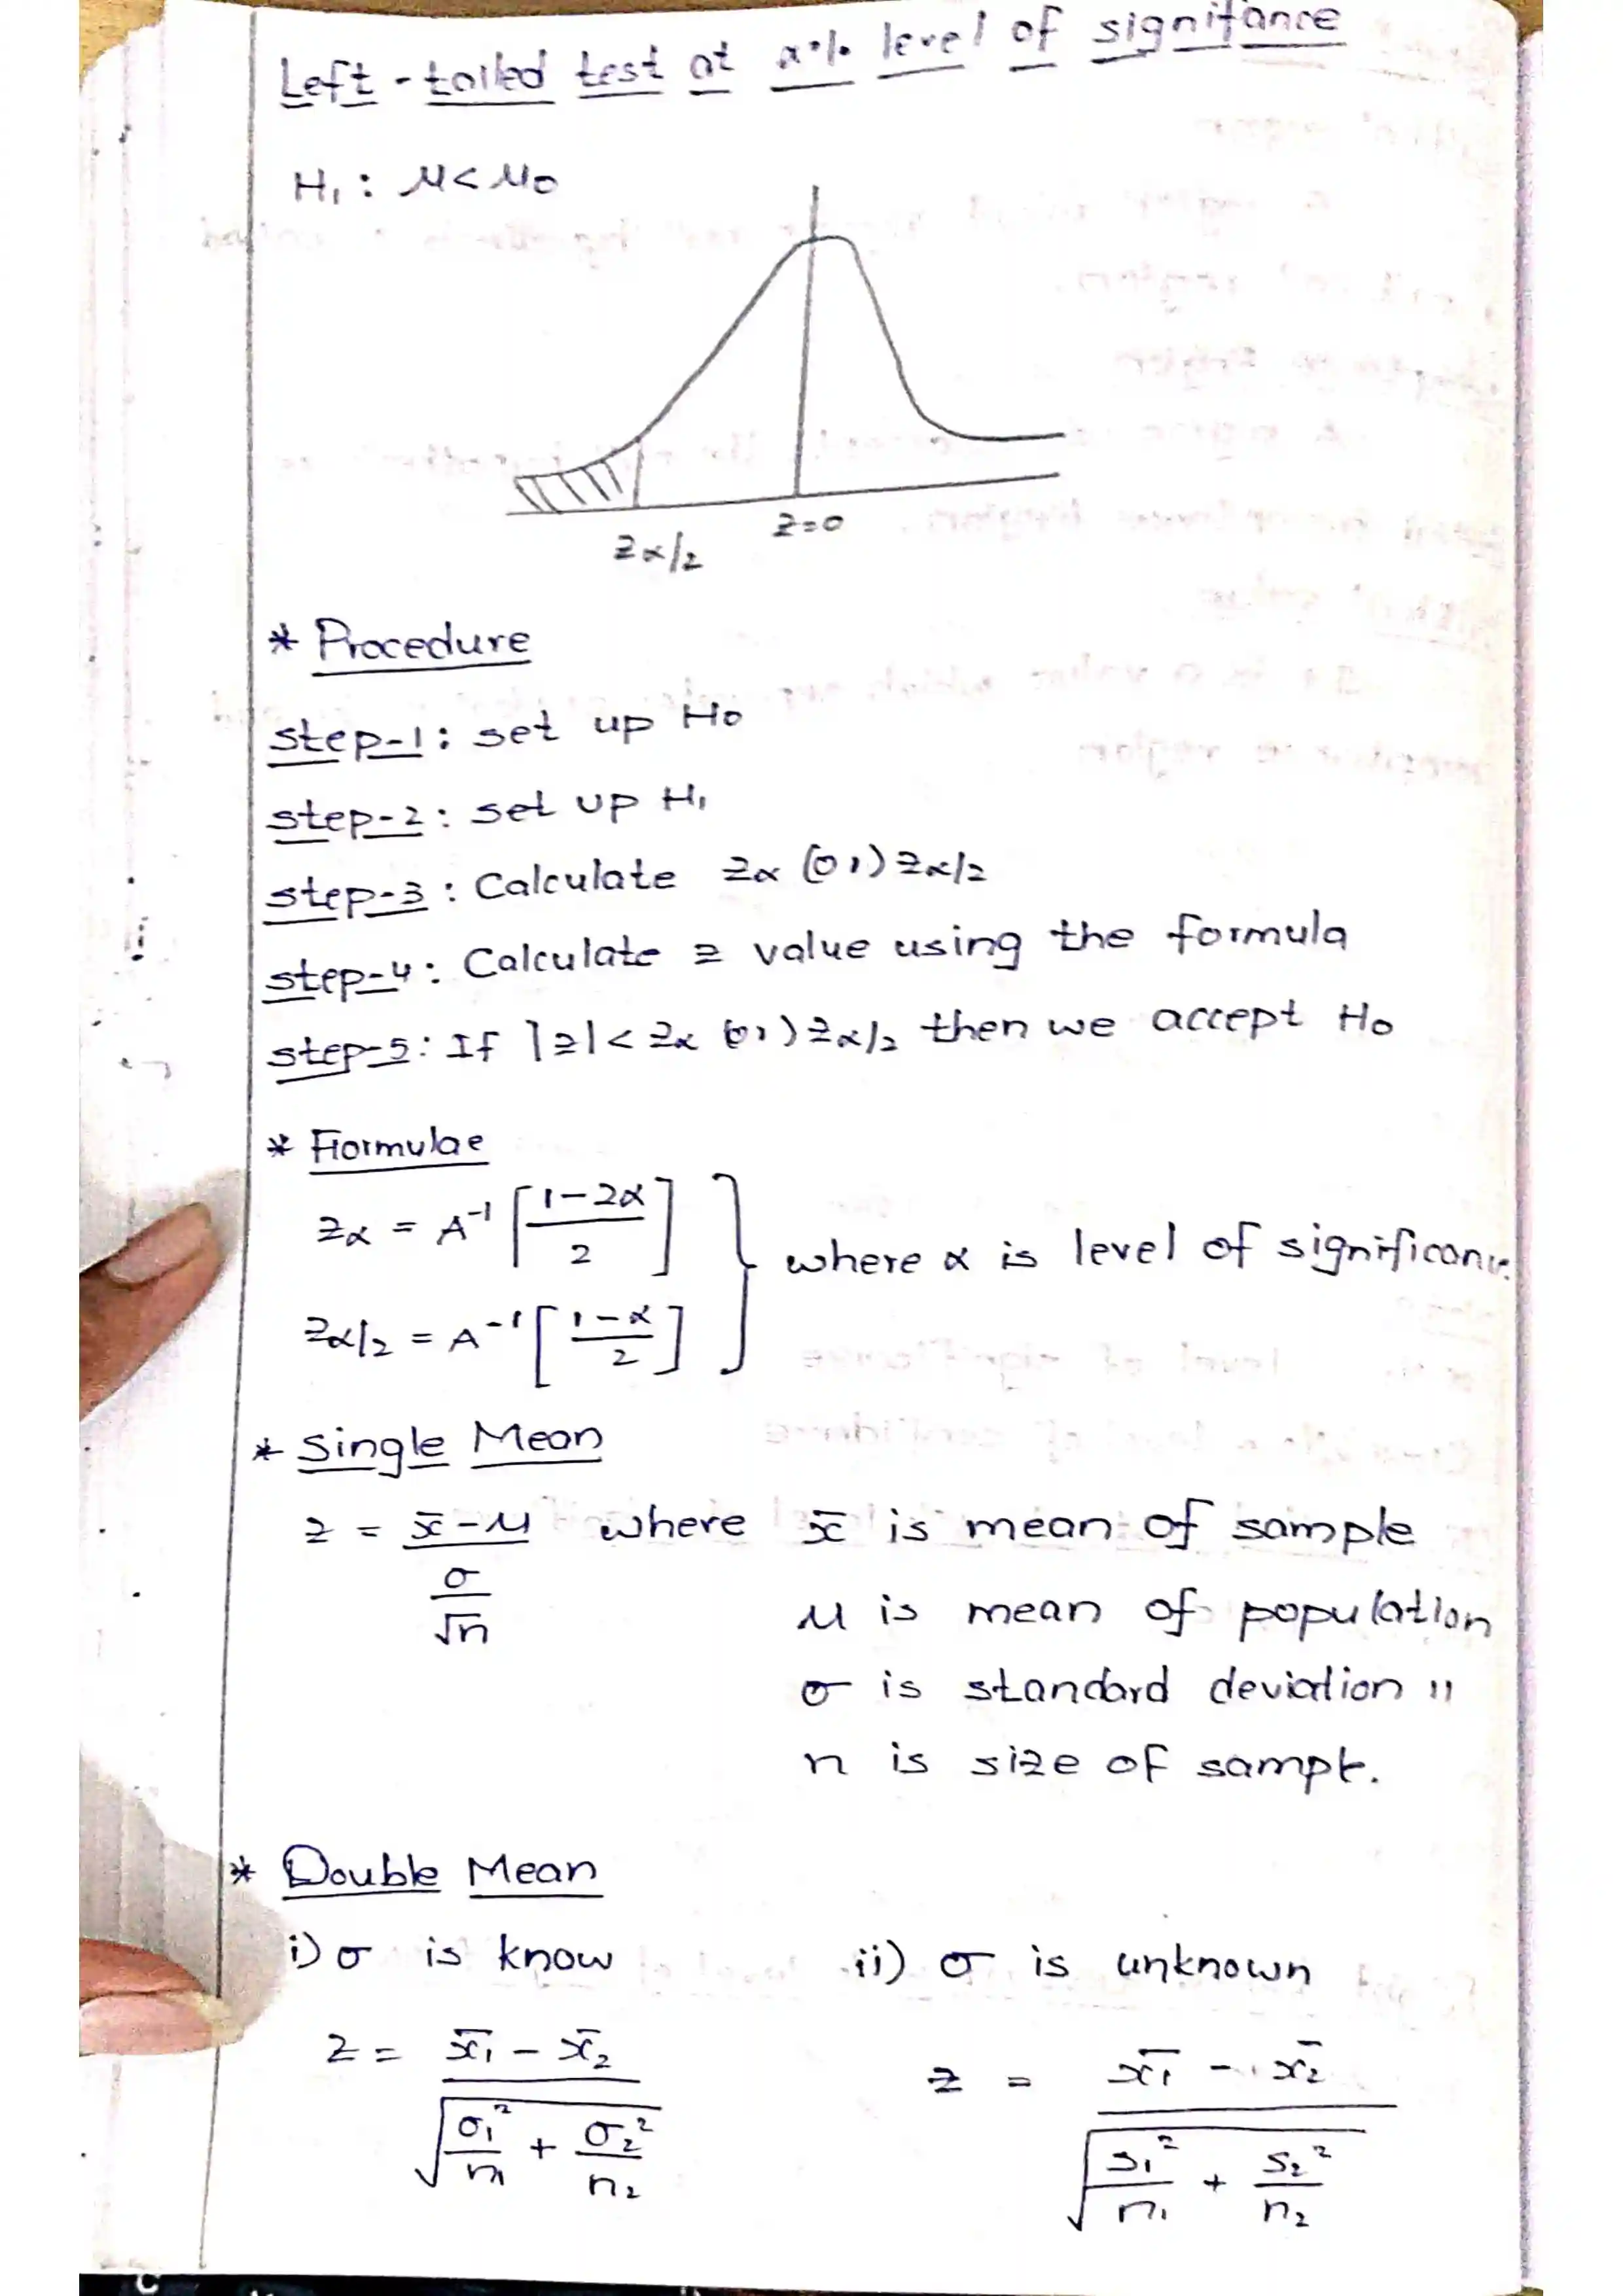 Left-tailed test at α% level of signifance
H₁ : μ < μ₀
z=0
zα/2
* Procedure
step-1: set up H₀
step-2: set up H₁
step-3: Calculate zα (or) zα/2
step-4: Calculate z value using the formula
step-5: If |z| < zα (or) zα/2 then we accept H₀
* Formulae
zα = A⁻¹ [ (1-2α)/2 ]
where α is level of significance
zα/2 = A⁻¹ [ (1-α)/2 ]
* Single Mean
z = (x̄ - μ) / (σ/√n) where x̄ is mean of sample
μ is mean of population
σ is standard deviation "
n is size of sample.
* Double Mean
i) σ is know
ii) σ is unknown
z = (x̄₁ - x̄₂) / √(σ₁²/n₁ + σ₂²/n₂)
z = (x̄₁ - x̄₂) / √(s₁²/n₁ + s₂²/n₂)